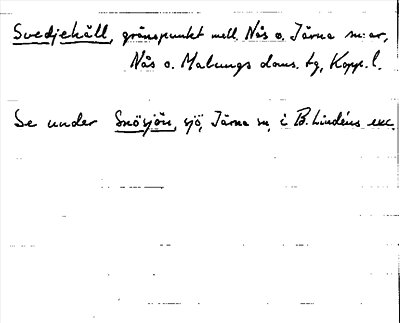 Svedjehäll, gränspunkt mell. Nås o. Järna sn:ar,
Nås o. Malungs doms. tg, Kopp. l.
Se under Snösjön, sjö, Järna sn, i B. Lindéns exc.